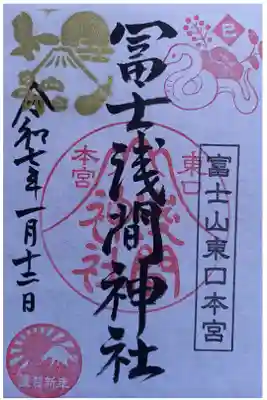 巳
富士山東口本宮
冨士浅間神社
東口
本宮
令和七年一月十二日
謹賀新年